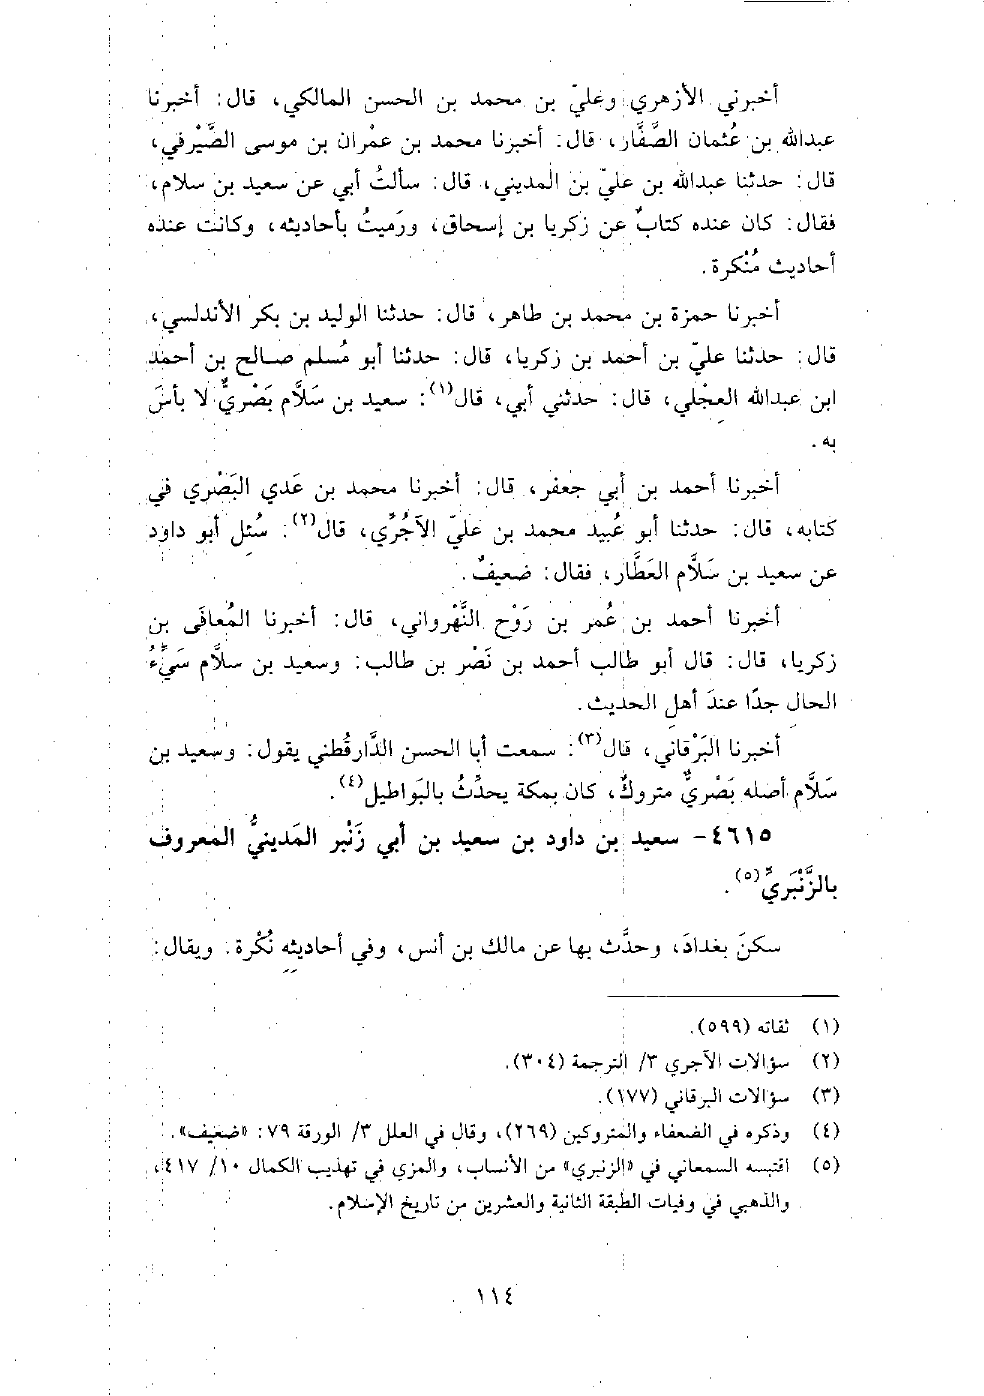 أخبرني الأزهري وعليّ بن محمد بن الحسن المالكي، قال: أخبرنا
عبدالله بن عُثمان الصَّفَّار، قال: أخبرنا محمد بن عمْران بن موسى الصَّيْرفي،
قال: حدثنا عبدالله بن عليّ بن المديني، قال: سألتُ أبي عن سعيد بن سلام،
فقال: كان عنده كتابٌ عن زكريا بن إسحاق، ورَميتُ بأحاديثه، وكانت عنده
أحاديث مُنْكرة.
أخبرنا حمزة بن محمد بن طاهر، قال: حدثنا الوليد بن بكر الأندلسي،
قال: حدثنا عليّ بن أحمد بن زكريا، قال: حدثنا أبو مُسلم صالح بن أحمد
ابن عبدالله العِجْلي، قال: حدثني أبي، قال(١): سعيد بن سَلَّام بَصْريٌّ لا بأسَ
به.
أخبرنا أحمد بن أبي جعفر، قال: أخبرنا محمد بن عَدي البَصْري في
كتابه، قال: حدثنا أبو عُبيد محمد بن عليّ الآجُرِّي، قال(٢): سُئل أبو داود
عن سعيد بن سَلَّام العَطَّار، فقال: ضعيفٌ.
أخبرنا أحمد بن عُمر بن رَوْح النَّهْرواني، قال: أخبرنا المُعافَى بن
زكريا، قال: قال أبو طالب أحمد بن نَصْر بن طالب: وسعيد بن سلاَّم سَيِّءُ
الحال جدًا عندَ أهل الحديث.
أخبرنا البَرْقاني، قال(٣): سمعت أبا الحسن الدَّارقُطني يقول: وسعيد بن
سَلَّام أصله بَصْريٌّ متروكٌ، كان بمكة يحدِّثُ بالبَواطيل(٤).
٤٦١٥- سعيد بن داود بن سعيد بن أبي زَنْبر المَدينيُّ المعروف
بالزَّنْبَريِّ(٥).
سكنَ بغدادَ، وحدَّث بها عن مالك بن أنس، وفي أحاديثه نُكْرة. ويقال:
(١) ثقاته (٥٩٩).
(٢) سؤالات الآجري ٣/ الترجمة (٣٠٤).
(٣) سؤالات البرقاني (١٧٧).
(٤) وذكره في الضعفاء والمتروكين (٢٦٩)، وقال في العلل ٣/ الورقة ٧٩: «ضعيف».
(٥) اقتبسه السمعاني في «الزنبري» من الأنساب، والمزي في تهذيب الكمال ١٠/ ٤١٧،
والذهبي في وفيات الطبقة الثانية والعشرين من تاريخ الإسلام.
١١٤